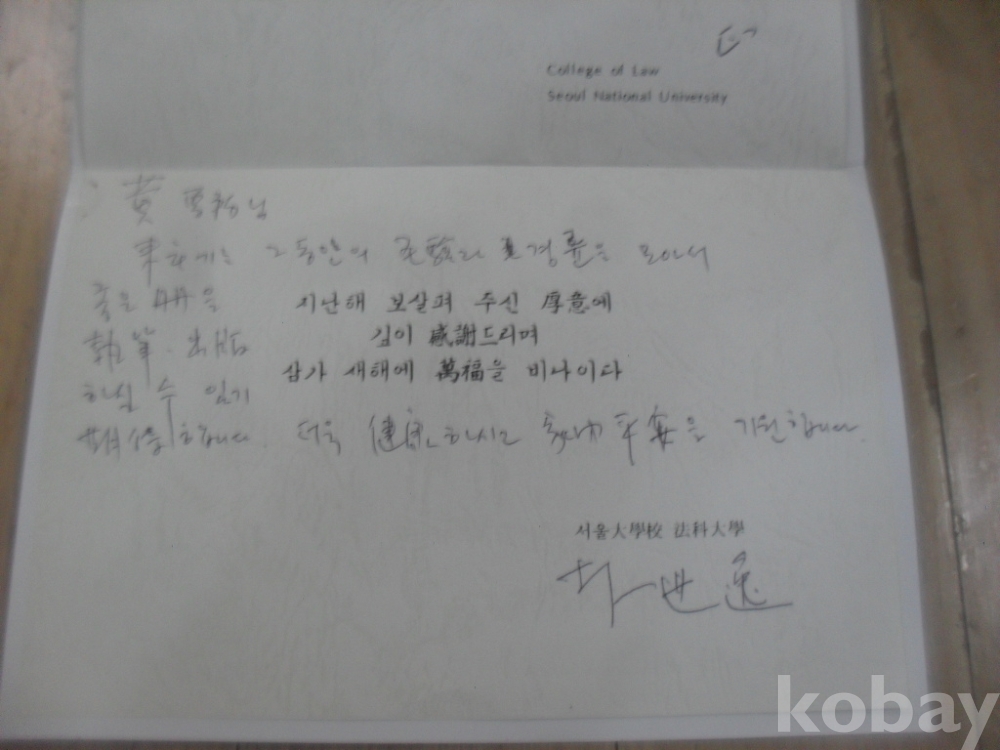 College of Law
Seoul National University
黄
그동안의 経験과 경륜을 모아서
좋은 冊을
지난해 보살펴 주신 厚意에
執筆·出版
깊이 感謝드리며
하실 수 있기
삼가 새해에 萬福을 비나이다
期待합니다. 더욱 健康하시고 家內平安을 기원합니다.
서울大學校 法科大學
kobay